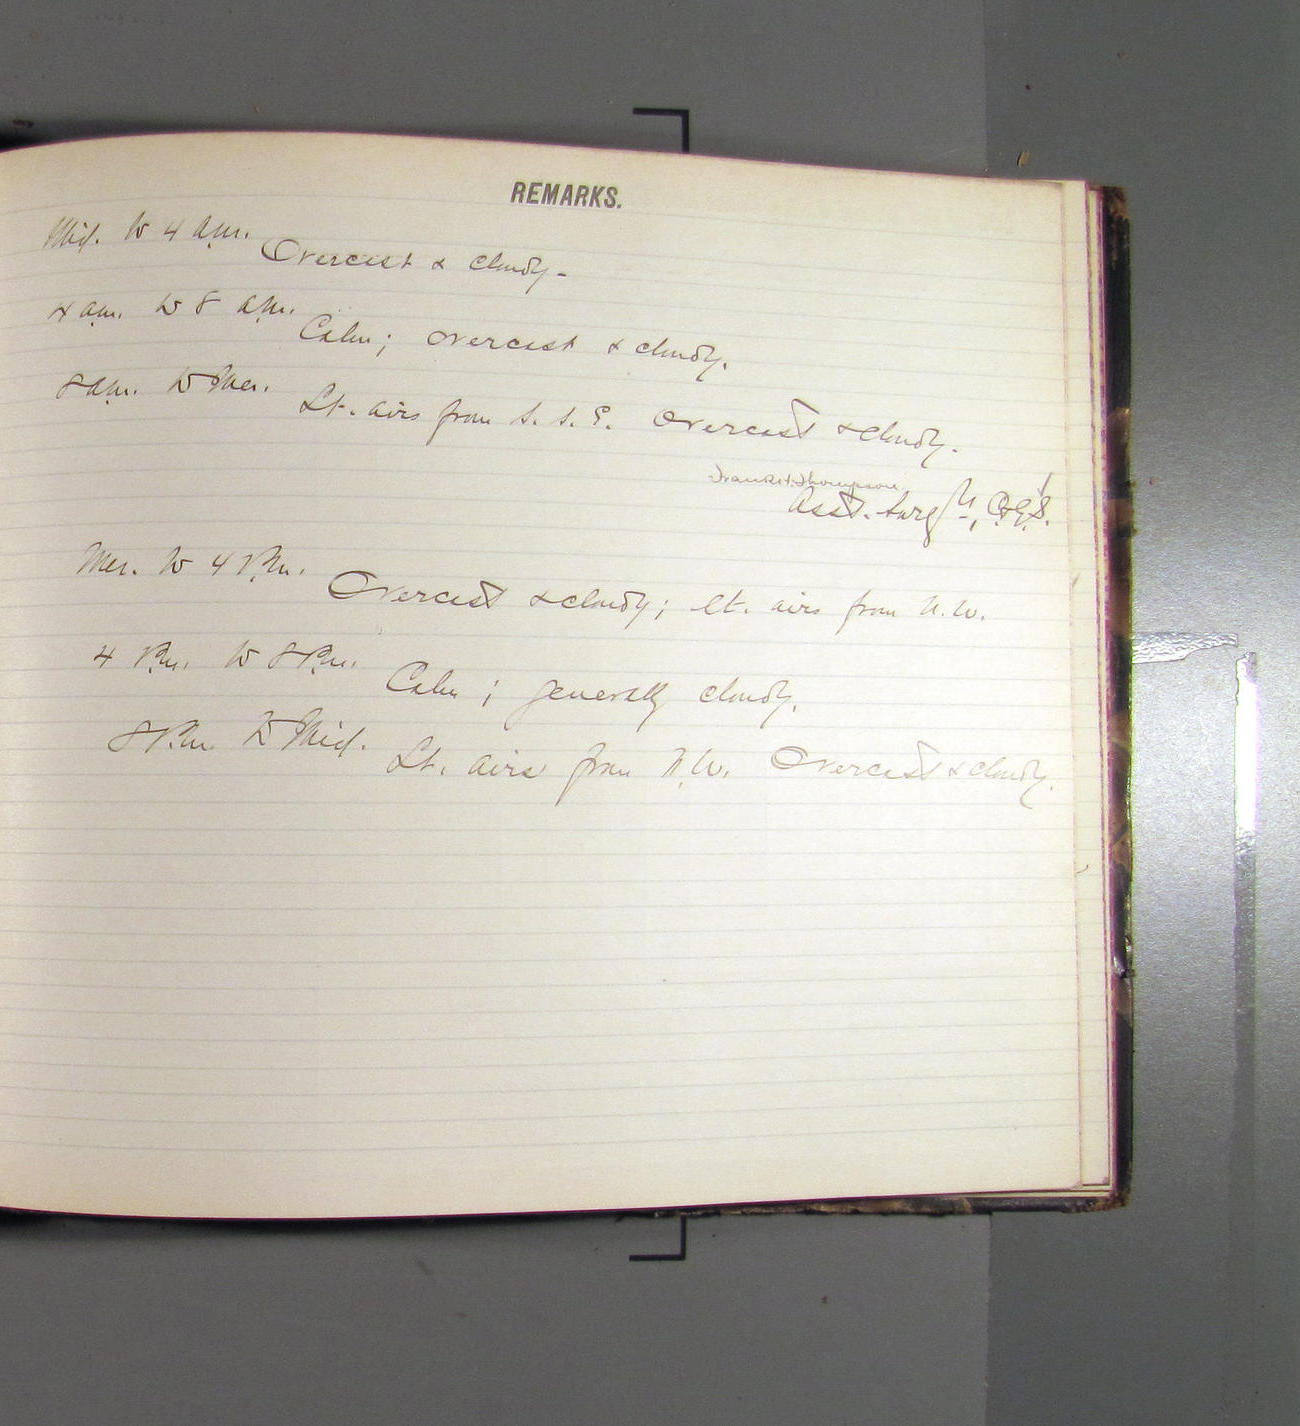 REMARKS.
Mid. to 4 a.m.
Overcast & cloudy -
4 a.m. to 8 a.m.
Calm; overcast & cloudy.
8 a.m. to Mer.
Lt. airs from S. S. E. Overcast & cloudy.
Thompson
Asst. Surg
Mer. to 4 P.m.
Overcast & cloudy; lt. airs from N.W.
4 P.m. to 8 P.m.
Calm; generally cloudy.
8 P.m. to Mid.
Lt. airs from N.W. Overcast & cloudy.